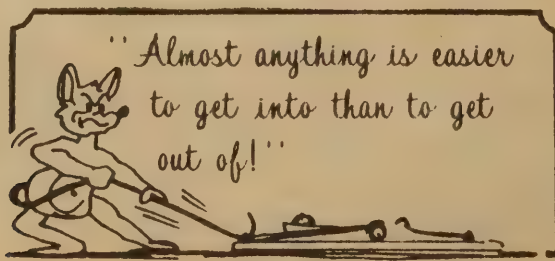 "Almost anything is easier
to get into than to get
out of!"